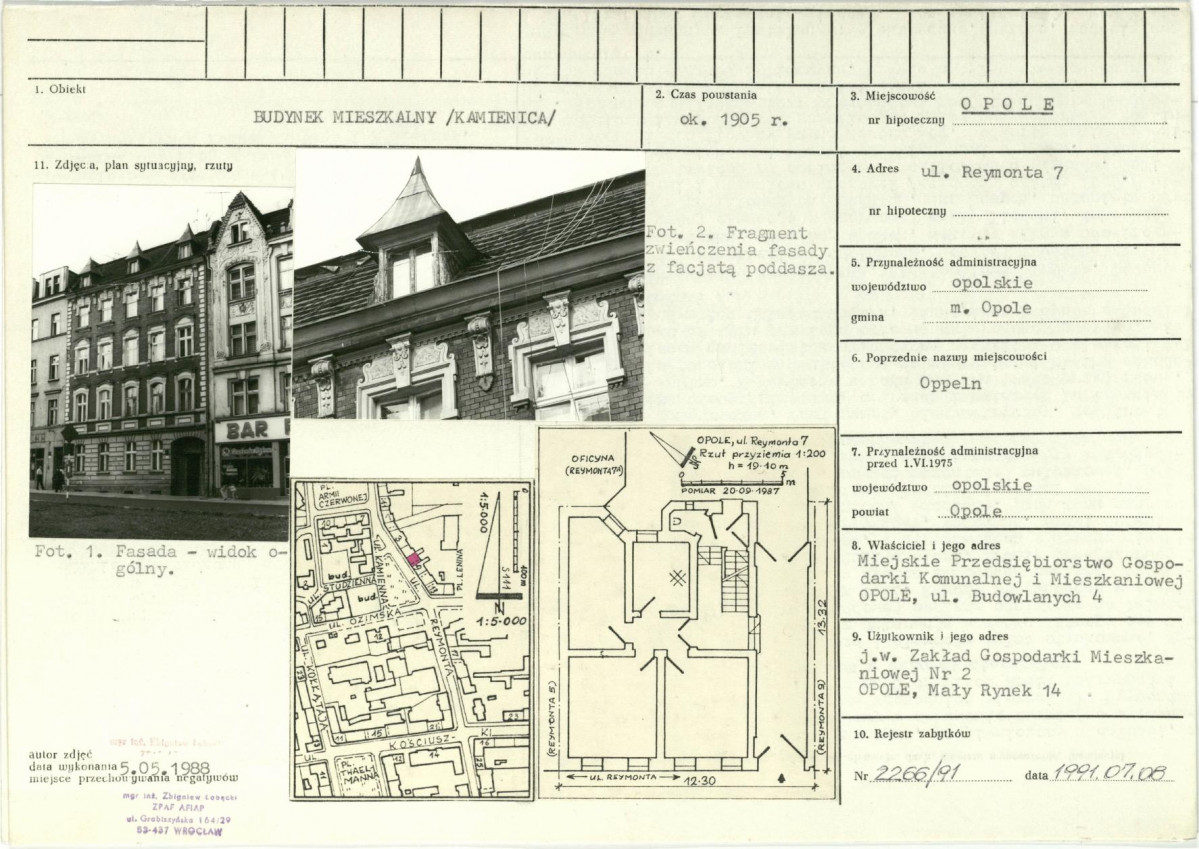 1. Obiekt
BUDYNEK MIESZKALNY /KAMIENICA/
2. Czas powstania
ok. 1905 r.
3. Miejscowość OPOLE
nr hipoteczny
11. Zdjęcia, plan sytuacyjny, rzuty
4. Adres ul. Reymonta 7
nr hipoteczny
Fot. 2. Fragment
zwieńczenia fasady
z facjatą poddasza.
5. Przynależność administracyjna
województwo opolskie
gmina m. Opole
6. Poprzednie nazwy miejscowości
Oppeln
7. Przynależność administracyjna
przed 1.VI.1975
województwo opolskie
powiat Opole
8. Właściciel i jego adres
Miejskie Przedsiębiorstwo Gospo-
darki Komunalnej i Mieszkaniowej
OPOLE, ul. Budowlanych 4
9. Użytkownik i jego adres
j.w. Zakład Gospodarki Mieszka-
niowej Nr 2
OPOLE, Mały Rynek 14
10. Rejestr zabytków
Nr 2266/91 data 1991.07.08
BAR
Fot. 1. Fasada - widok o-
gólny.
PL.
ARMII
CZERWONEJ
UL. KAMIENNA
bud.
UL. STUDZIENNA
bud.
UL. OZIMSKA
REYMONTA
PL. LENINA
UL. KOŁŁĄTAJA
KOŚCIUSZ- KI
PL.
THAEL-
MANNA
1:5.000
400m
N
1:5.000
OFICYNA
(REYMONTA 7A)
OPOLE, ul. Reymonta 7
Rzut przyziemia 1:200
h = 19.10 m
0 5 m
POMIAR 20-09-1987
13.32
(REYMONTA 5)
(REYMONTA 9)
UL. REYMONTA
12.30
autor zdjęć
data wykonania 5.05.1988
miejsce przechowywania negatywów
mgr inż. Zbigniew Łobęcki
ZPAF AFIAP
ul. Grabiszyńska 164/29
53-437 WROCŁAW